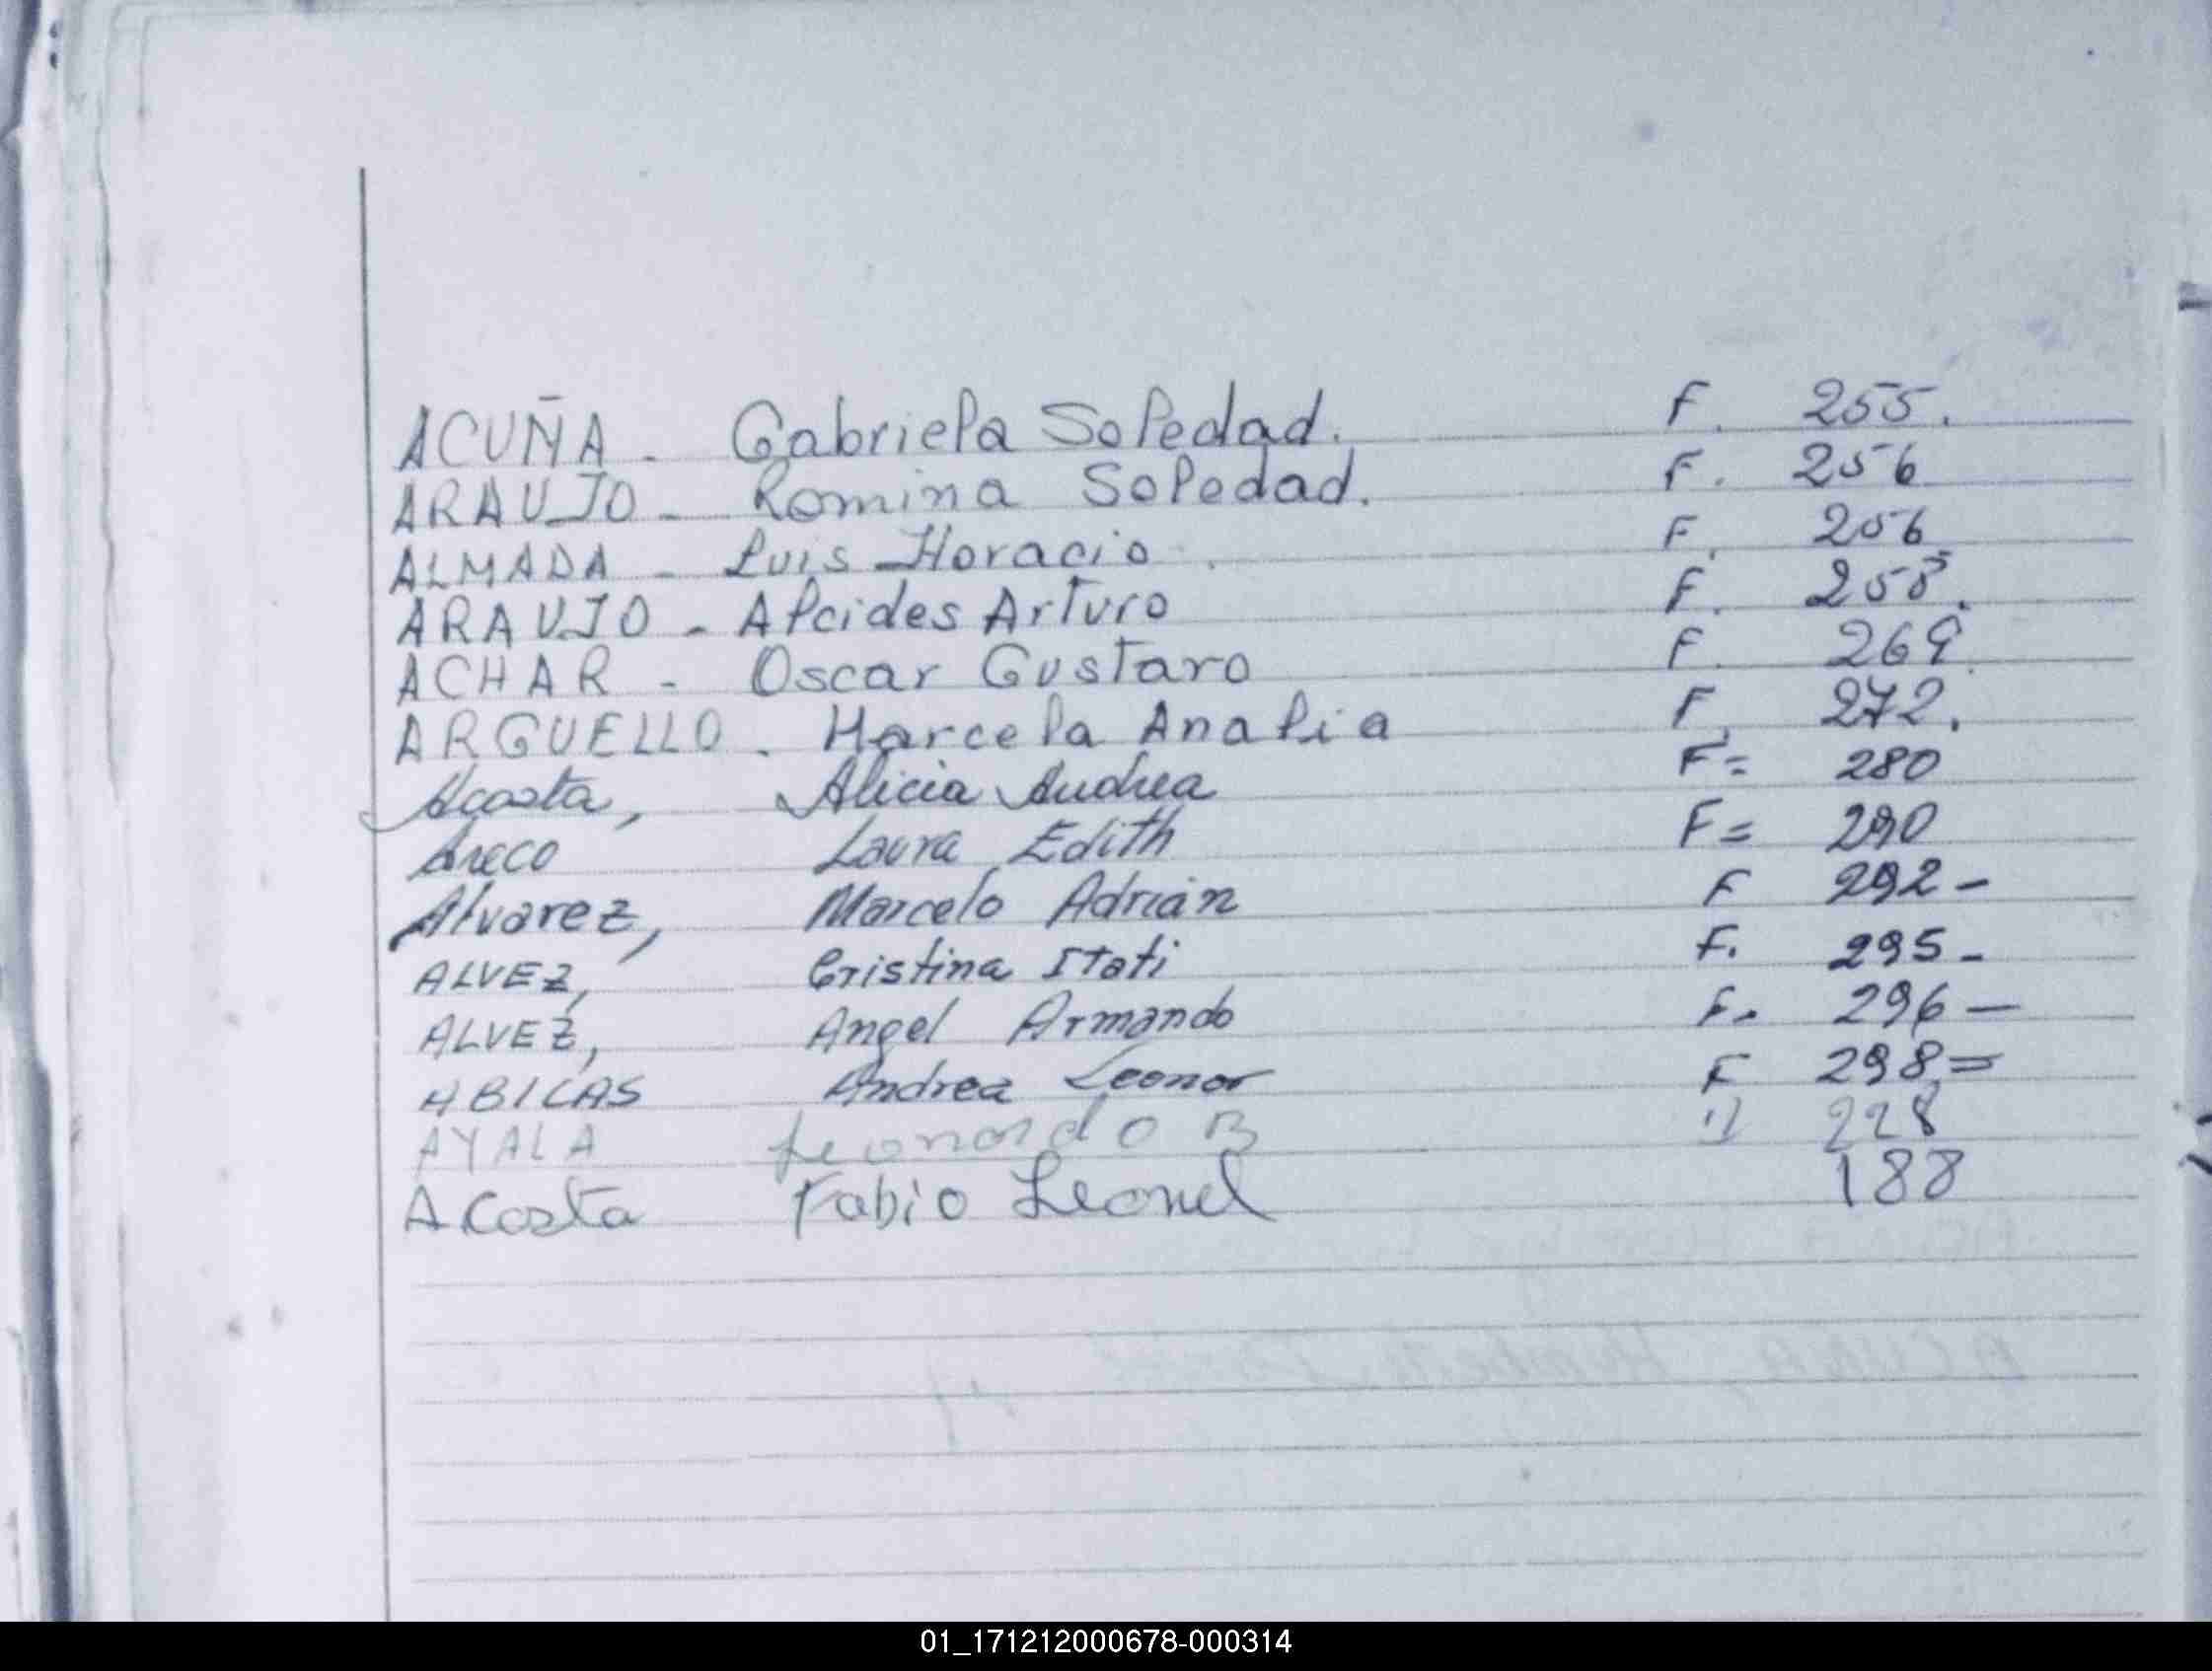 ACUÑA - Gabriela Soledad. F. 255.
ARAUJO - Romina Soledad. F. 256
ALMADA - Luis Horacio. F. 256
ARAUJO - Alcides Arturo F. 258.
ACHAR - Oscar Gustavo F. 269.
ARGUELLO. Marcela Analia F. 272.
Acosta, Alicia Andrea F= 280
Areco Laura Edith F= 290
Alvarez, Marcelo Adrián F 292-
ALVEZ, Cristina Itati F. 295-
ALVEZ, Angel Armando F. 296-
ABICAS Andrea Leonor F 298=
AYALA Leonardo B 228
Acosta Fabio Leonel 188
01_171212000678-000314